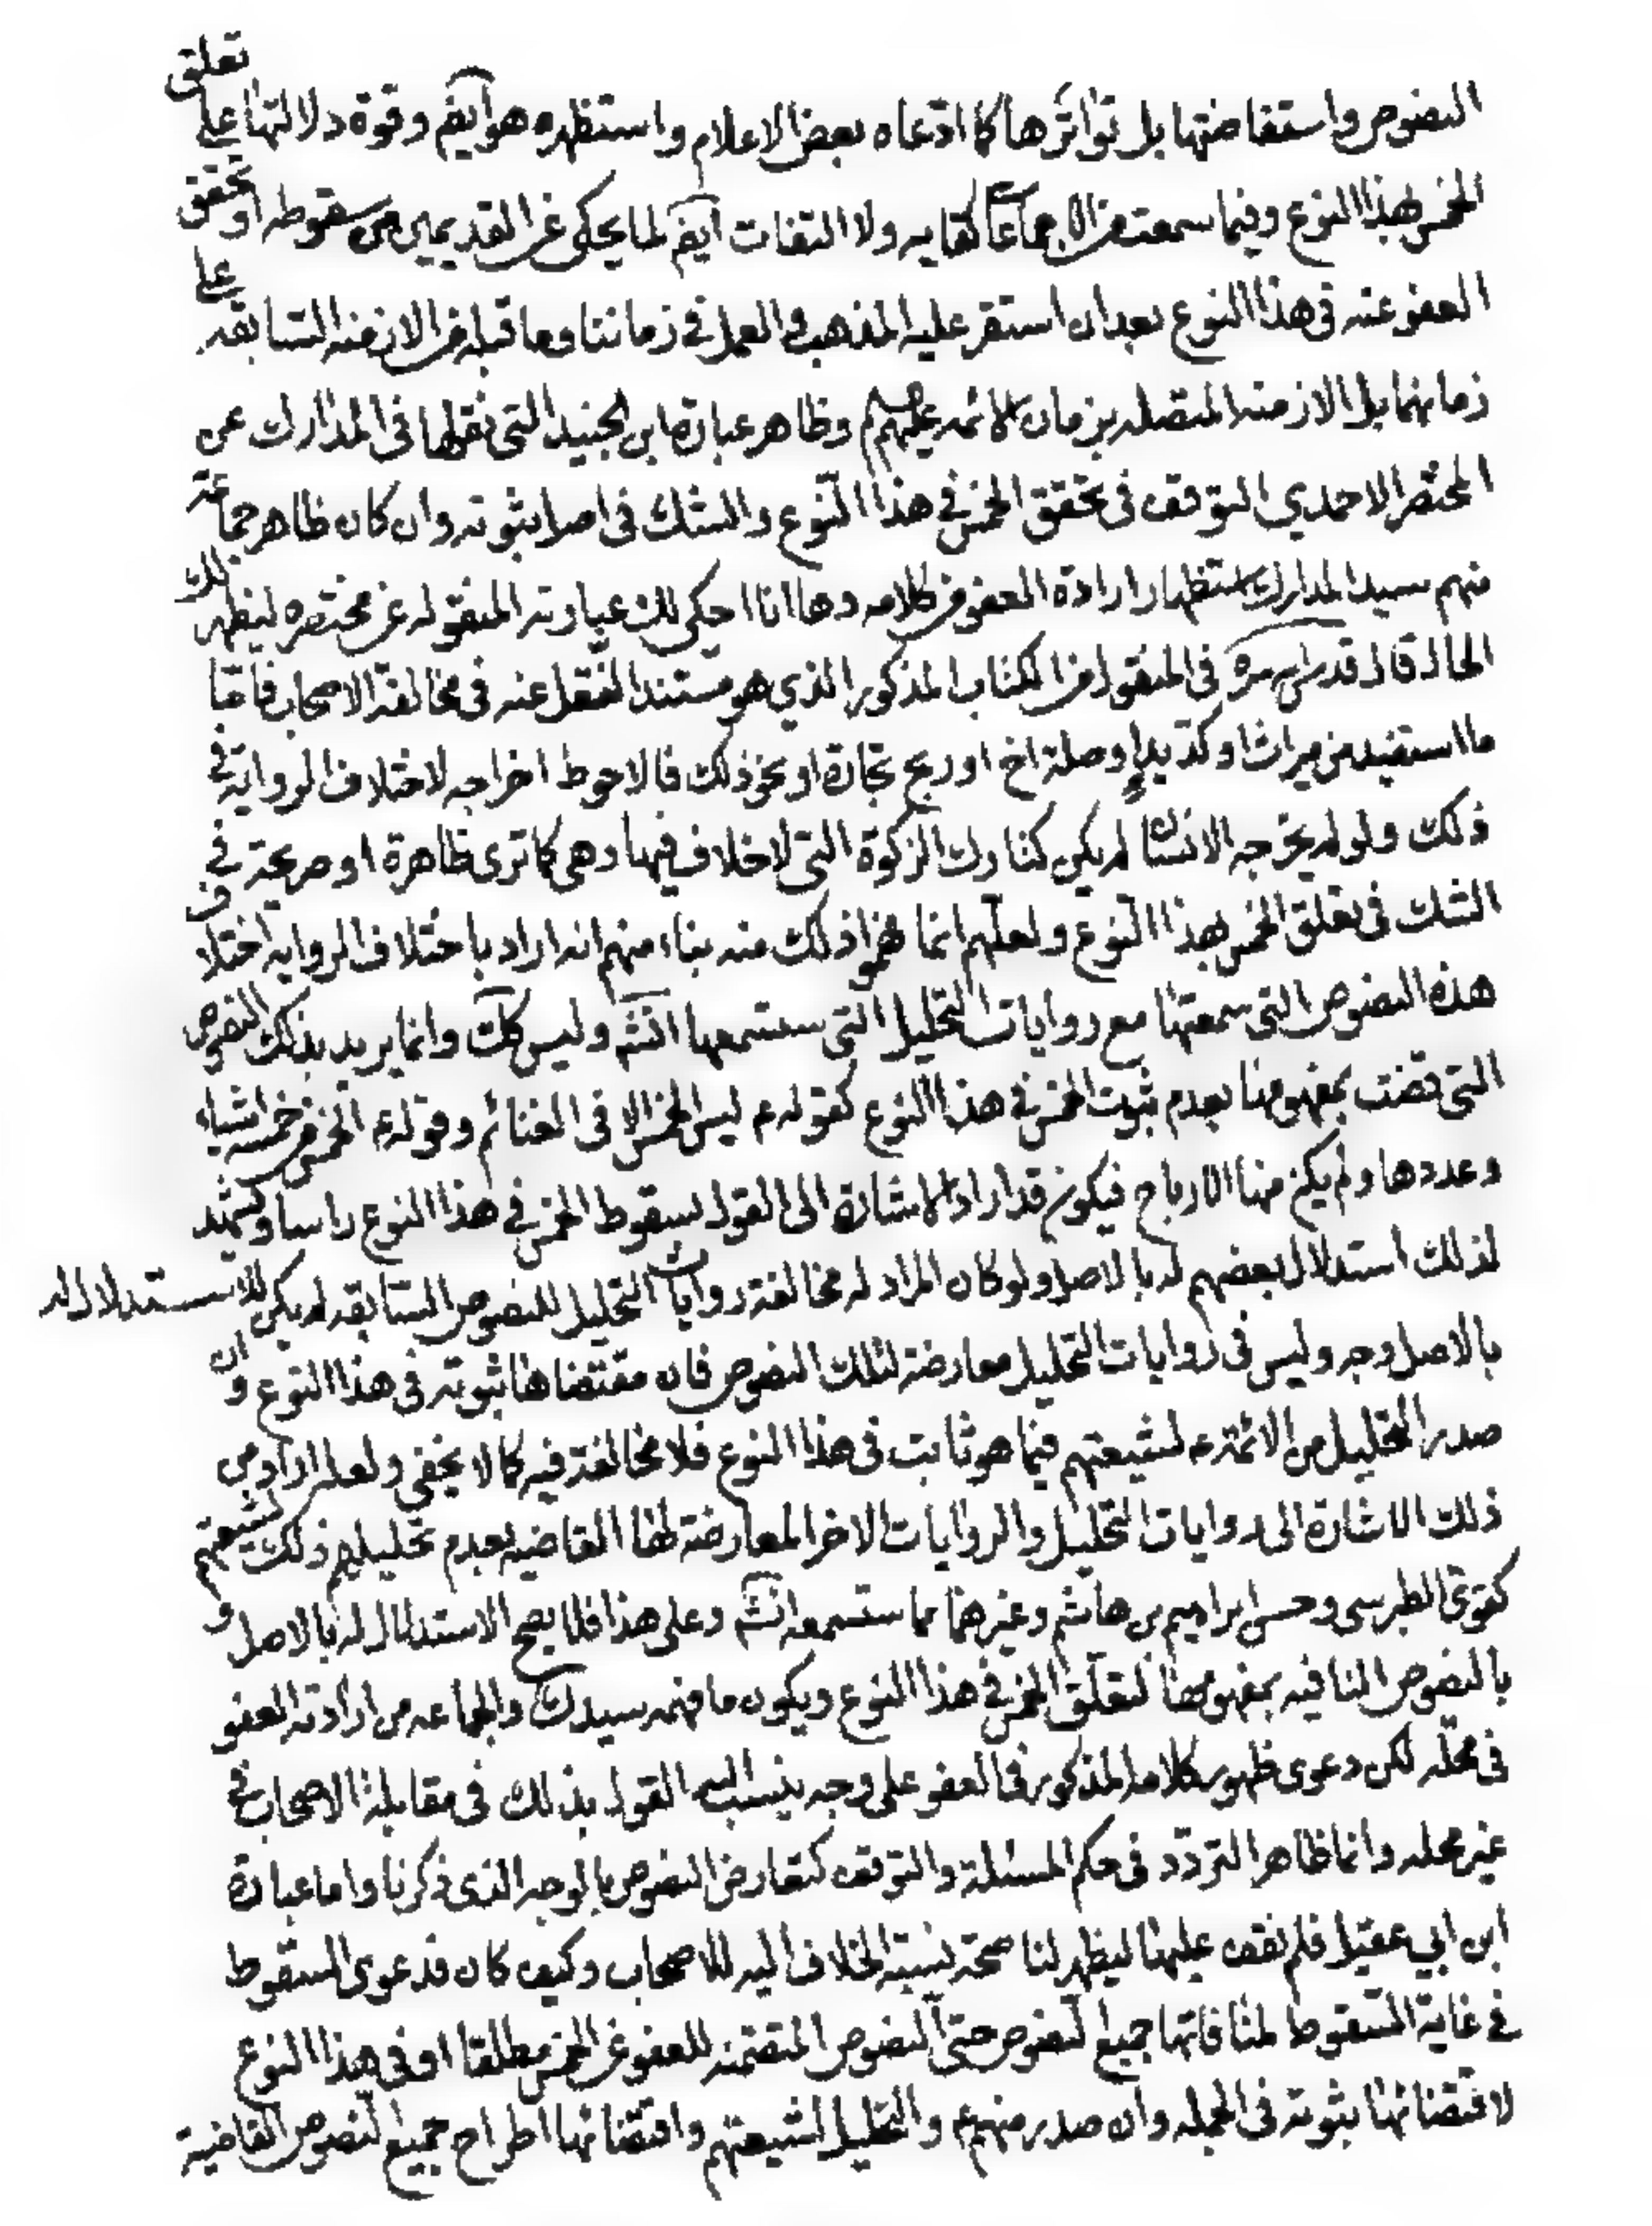 النصوص واستفاضتها بل تواترها كما ادّعاه بعض الاعلام واستظهره هو ايضم وقوة دلالتها على تعلق
الخمس بهذا النوع وفيما سمعت من الاجماعات كفايه ولا التفات ايضم لما يحكى عن القديمين من سقوطه او تحقق
العفو عنه فى هذا النوع بعد ان استقر عليه المذهب والعمل فى زماننا وما قبله من الازمنه السابقه على
زمانهما بل الازمنه المتصله بزمان الائمه عليهم وظاهر عبارة ابن الجنيد التى نقلها فى المدارك عن
المختصر الاحمدي التوقف فى تحقق الخمس فى هذا النّوع والشك فى اصل ثبوته وان كان ظاهر جماعة
منهم سيد المدارك استظهار ارادة العفو من كلامه وها انا احكى لك عبارته المنقوله عن مختصره ليظهر لك
الحال قال قدس سره فى المنقول من الكتاب المذكور الذي هو مستند النقل عنه فى مخالفة الاصحاب فاما
ما استفيد من ميراث او كد يد او صلة اخ او ربح تجارة او نحو ذلك فالاحوط اخراجه لاختلاف الرواية فى
ذلك ولو لم يخرجه الانسا لم يكن كتارك الزكوة التى لا خلاف فيها وهى كما ترى ظاهرة او صريحة فى
الشك فى تعلق الخمس بهذا النّوع ولعلّهم انما فهموا ذلك منه بناء منهم انه اراد باختلاف الروايه اختلاف
هذه النصوص التى سمعتها مع روايات التحليل التى ستسمعها انشم وليس كك وانما يريد بذلك النصوص
التى قضت بمفهومها بعدم ثبوت الخمس فى هذا النوع كقوله ع ليس الخمس الا فى الغنائم وقوله ع الخمس من خمسه اشياء
وعددها ولم يكن منها الارباح فيكون قد اراد الاشارة الى القول بسقوط الخمس فى هذا النوع راسا ويشهد
لذلك استدلال بعضهم له بالاصل ولو كان المراد له مخالفة روايات التحليل للنصوص السابقه لم يكن للاستدلال له
بالاصل وجه وليس فى روايات التحليل معارضة لتلك النصوص فان مقتضاها ثبوته فى هذا النوع وان
صدر التحليل من الائمة ع لشيعتهم فيما هو ثابت فى هذا النوع فلا مخالفة فيه كما لا يخفى ولعله اراد من
ذلك الاشارة الى روايات التحليل والروايات الاخر المعارضة لها القاضيه بعدم تحليلهم ذلك لشيعتهم
كقوى الطبرسى وحسن ابراهيم بن هاشم وغيرهما مما ستسمعه انشم وعلى هذا فلا يصح الاستدلال له بالاصل و
بالنصوص النافيه بمفهومها لتعلّق الخمس فى هذا النوع ويكون ما فهمه سيد ك والجماعه من ارادته العفو
فى محلّه لكن دعوى ظهور كلامه المذكور فى العفو على وجه ينسب اليه القول بذلك فى مقابلة الاصحاب فى
غير محله وانما ظاهر التردّد فى حكم المسئلة والتوقف كتعارض النصوص بالوجه الذى ذكرنا واما عبارة
ابن ابي عقيل فلم نقف عليها ليظهر لنا صحة نسبة الخلاف اليه للاصحاب وكيف كان فدعوى السقوط
فى غاية السّقوط لمنافاتها جميع النصوص حتى النصوص المتضمنه للعفو عن الخمس مطلقا او فى هذا النوع
لاقتضائها ثبوته فى الجمله وان صدر منهم ع والتحليل لشيعتهم واقتضائها اطراح جميع النصوص القاضية